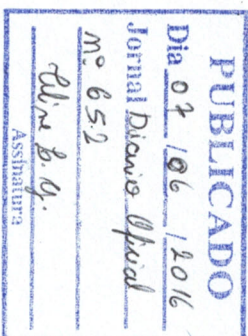 PUBLICADO
Dia 07 / 06 / 2016
Jornal Diario Oficial
nº 652
Assinatura